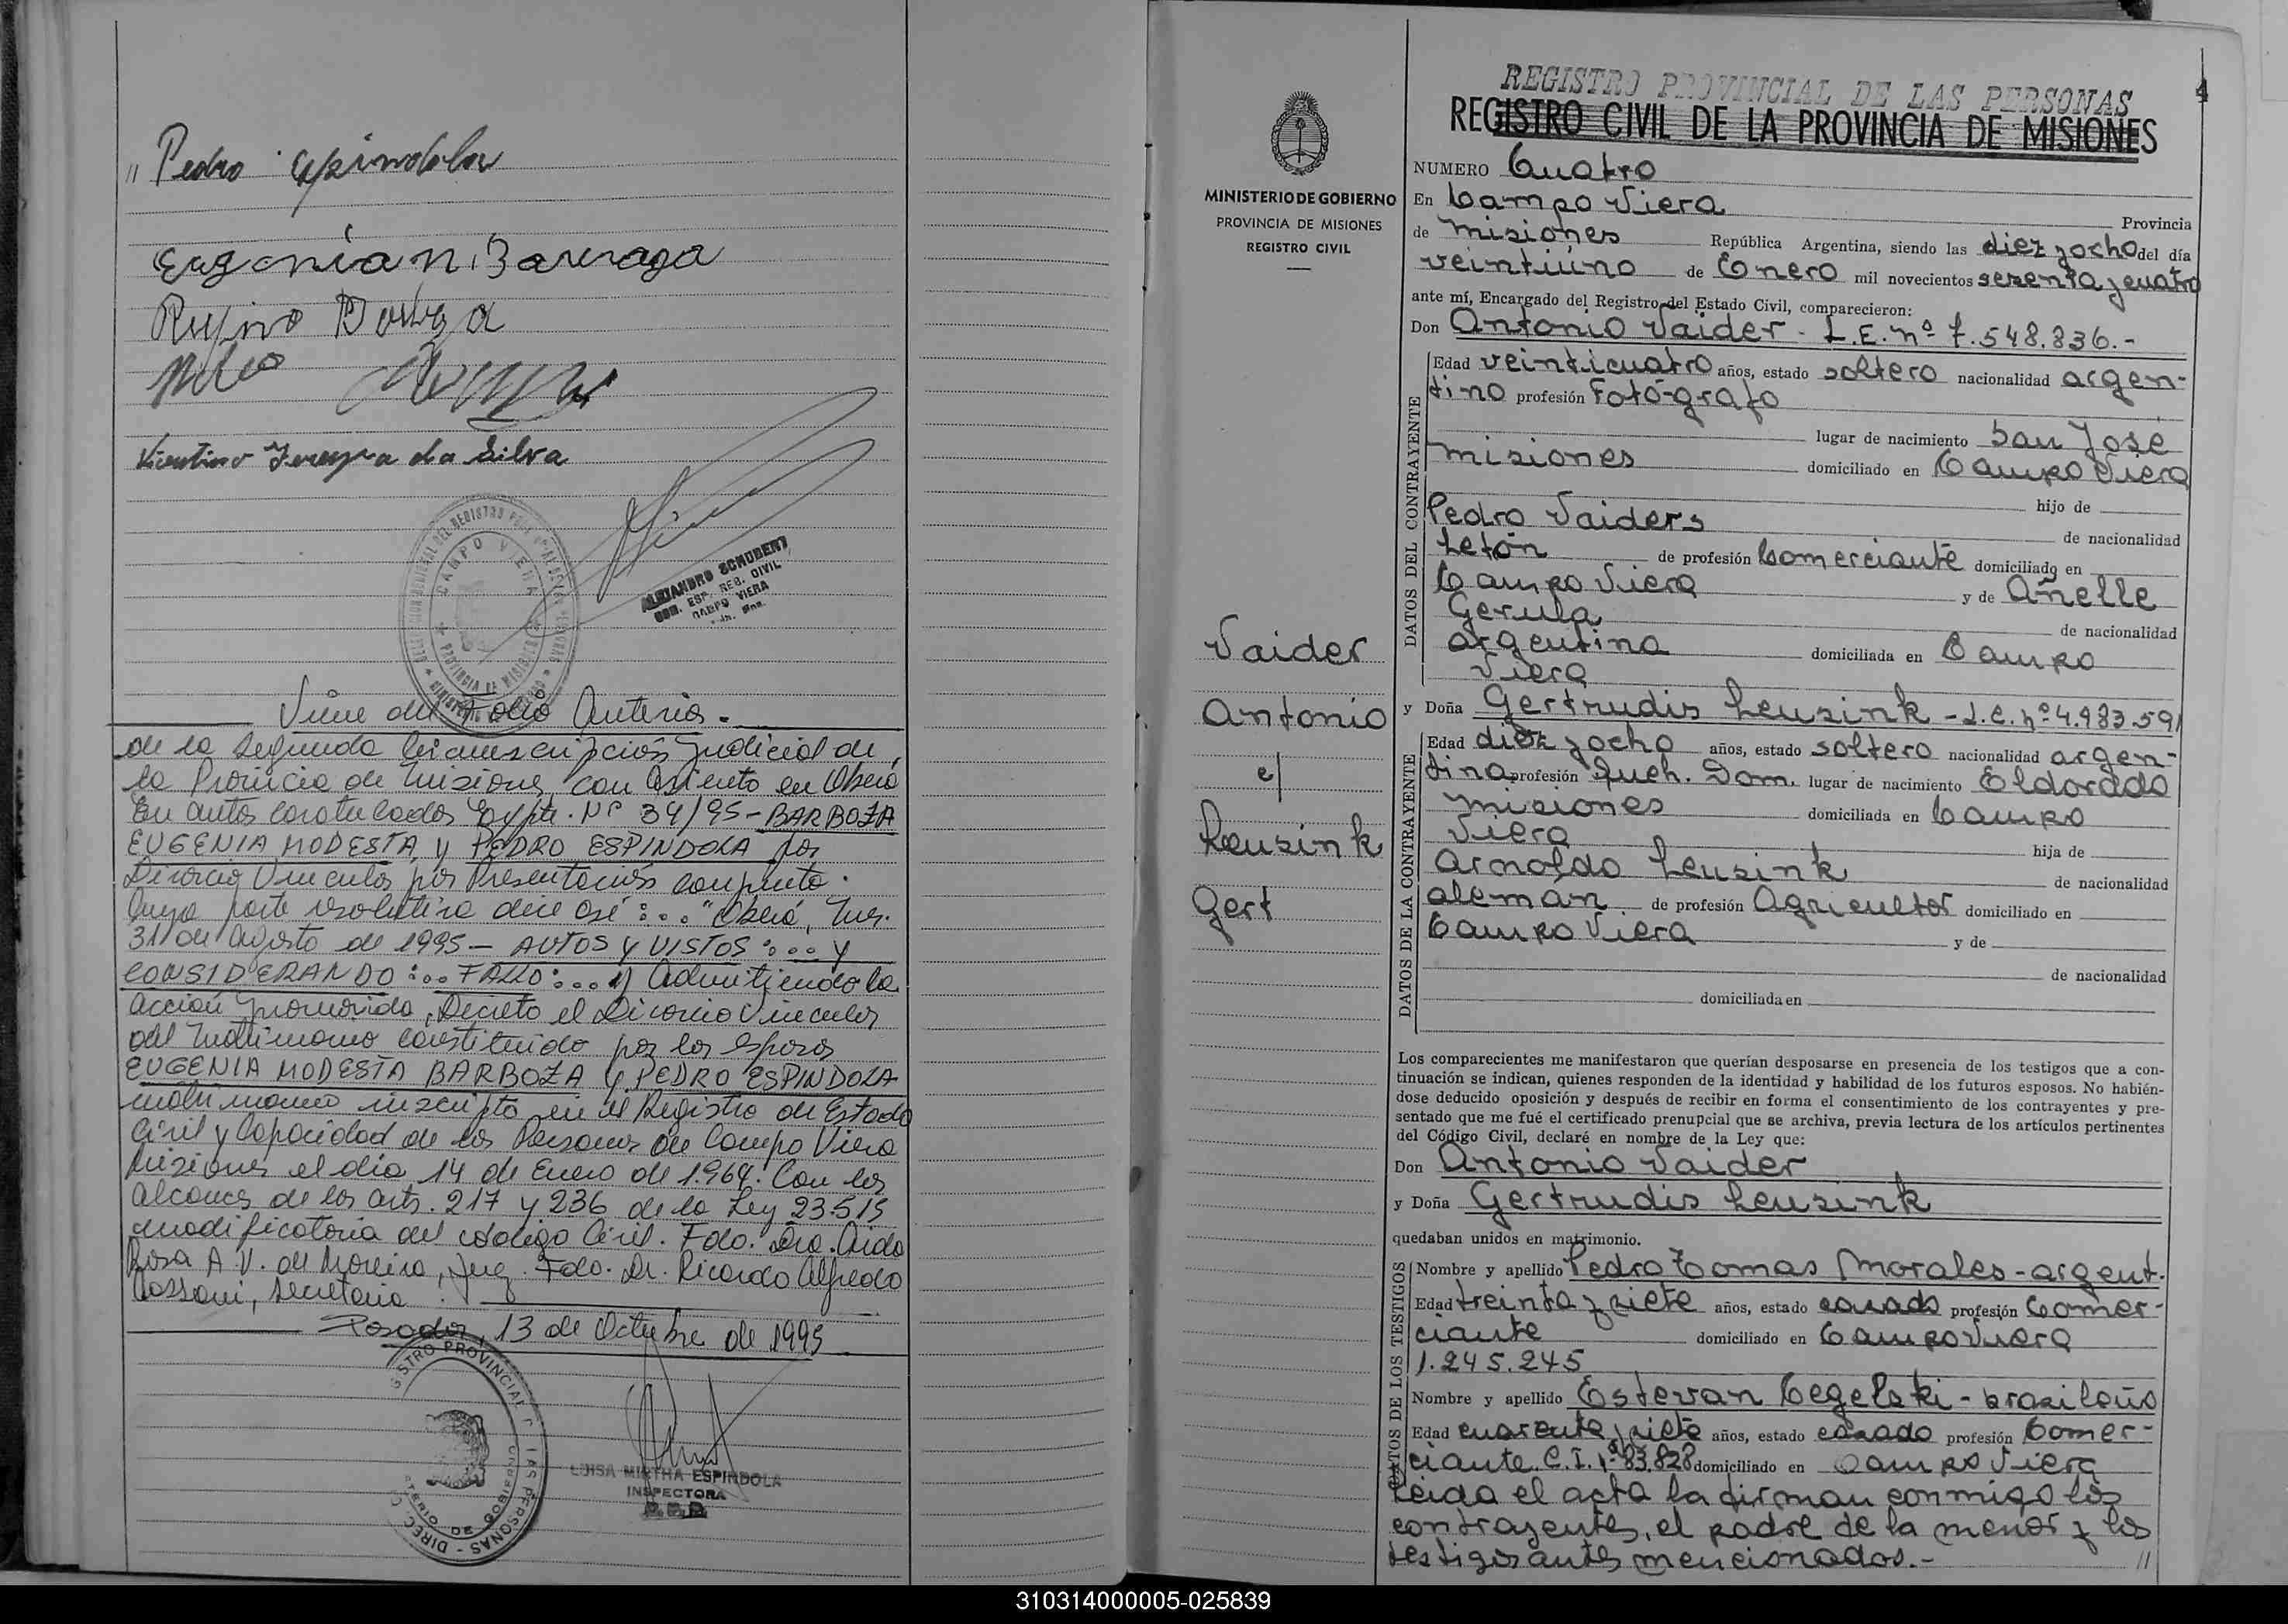 " Pedro Espindola
Eugenia M. Barboza
Rufino
Vicentino Fereyra da Silva
CAMPO VIERA
PROVINCIA DE MISIONES
ALEJANDRO SCHUBERT
REG. CIVIL
CAMPO VIERA
Viene del Folio Anterior.-
de la Segunda Circunscripción Judicial de
la Provincia de Misiones, con asiento en Oberá
En autos caratulados Expte. Nº 34/95 - BARBOZA
EUGENIA MODESTA y PEDRO ESPINDOLA por
Divorcio Vincular por Presentación conjunta.
Cuya parte resolutiva dice así: ... "Oberá, Mnes.
31 de Agosto de 1995 - AUTOS Y VISTOS: ... Y
CONSIDERANDO: ... FALLO: ... 1) Admitiendo la
acción promovida, Decreto el Divorcio Vincular
del Matrimonio constituido por los esposos
EUGENIA MODESTA BARBOZA y PEDRO ESPINDOLA
matrimonio inscripto en el Registro de Estado
Civil y Capacidad de las Personas de Campo Viera
Misiones el día 14 de Enero de 1.964. Con los
alcances de los arts. 217 y 236 de la Ley 23.515
modificatoria del código Civil. Fdo. Dra. Aida
Rosa A. V. de Moreira, Juez. Fdo. Dr. Ricardo Alfredo
Cassoni, Secretario.
Posadas, 13 de Octubre de 1995
LUISA MIRTHA ESPINDOLA
INSPECTORA
R.P.P.
4
REGISTRO PROVINCIAL DE LAS PERSONAS
REGISTRO CIVIL DE LA PROVINCIA DE MISIONES
MINISTERIO DE GOBIERNO
PROVINCIA DE MISIONES
REGISTRO CIVIL
NUMERO Cuatro
En Campo Viera Provincia
de Misiones República Argentina, siendo las diez y ocho del día
veintiuno de Enero mil novecientos sesenta y cuatro
ante mí, Encargado del Registro del Estado Civil, comparecieron:
Don Antonio Vaider - L.E. nº 7.548.836.-
DATOS DEL CONTRAYENTE
Edad veinticuatro años, estado soltero nacionalidad argen-
tino profesión Fotógrafo
lugar de nacimiento San José
Misiones domiciliado en Campo Viera
hijo de
Pedro Vaiders de nacionalidad
Letón de profesión Comerciante domiciliado en
Campo Viera y de Añelle
Gerula de nacionalidad
argentina domiciliada en Campo
Viera
Vaider
Antonio
c/
Leuzink
Gert
y Doña Gertrudis Leuzink - L.C. nº 4.983.591
DATOS DE LA CONTRAYENTE
Edad diez y ocho años, estado soltero nacionalidad argen-
tina profesión Queh. Dom. lugar de nacimiento Eldorado
Misiones domiciliada en Campo
Viera hija de
Arnoldo Leuzink de nacionalidad
alemán de profesión Agricultor domiciliado en
Campo Viera y de
de nacionalidad
domiciliada en
Los comparecientes me manifestaron que querían desposarse en presencia de los testigos que a con-
tinuación se indican, quienes responden de la identidad y habilidad de los futuros esposos. No habién-
dose deducido oposición y después de recibir en forma el consentimiento de los contrayentes y pre-
sentado que me fué el certificado prenupcial que se archiva, previa lectura de los artículos pertinentes
del Código Civil, declaré en nombre de la Ley que:
Don Antonio Vaider
y Doña Gertrudis Leuzink
quedaban unidos en matrimonio.
DATOS DE LOS TESTIGOS
Nombre y apellido Pedro Tomas Morales - argent.
Edad treinta y siete años, estado casado profesión Comer-
ciante domiciliado en Campo Viera
1.245.245
Nombre y apellido Estevan Cegelski - brasileño
Edad cuarenta y siete años, estado casado profesión Comer-
ciante C.I. nº 83.828 domiciliado en Campo Viera
Leida el acta la firman conmigo los
contrayentes, el padre de la menor y los
testigos antes mencionados.- //
310314000005-025839